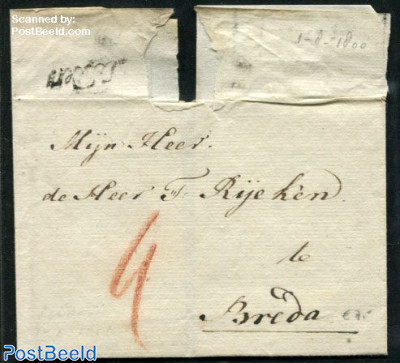 Scanned by
PostBeeld.com
1-8-1800
Mijn Heer.
de Heer F. Rijeken.
te
4
Breda
PostBeeld